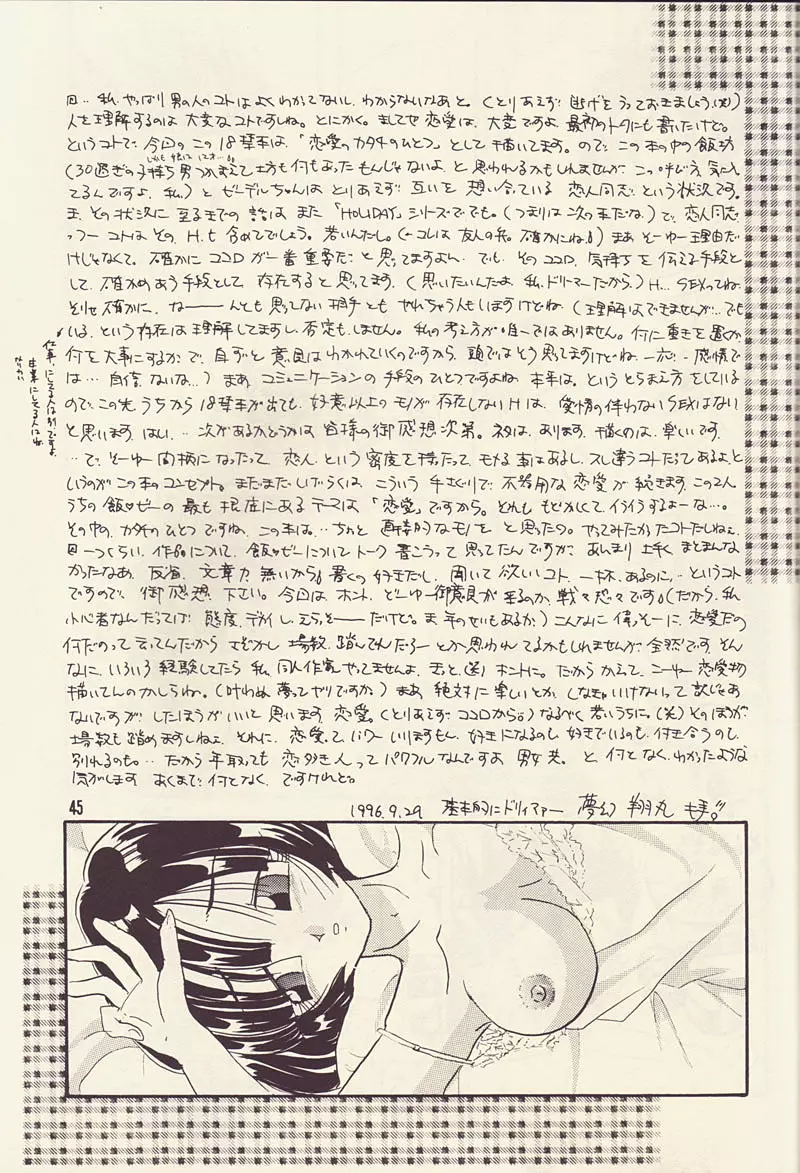 回‥私、やっぱり男の人のコトはよくわかってないし、わからないなあと。(とりあえず逃げをうっておきましょう(笑))
人を理解するのは大変なコトですしね。とにかく。ましてや恋愛は、大変ですよ、最初のトークにも書いたけど。
というコトで、今回のこの18禁本は、「恋愛のカタチのひとつ」として描いてます。ので、この本の中の飯坊
(30過ぎの子持ち男つかまえて坊も何もあったもんじゃないよ、と思われるかもしれませんが、この呼び方、気に入っ
てるんですよ、私。)とビーデルちゃんはとりあえず互いを想い合っている恋人同志という状況です。
ま、その状況に至るまでの話はまた「HOLIDAY」シリーズででも。(つまりは次の本だな。)で、恋人同志、
っつーコトはその、Hも含めてでしょう。若いんだし。(←コレは友人の弁。確かにね。)まあそーゆー理由だ
けじゃなくて。確かにココロが一番重要だと思ってますよん‥でも、そのココロ、気持ちを伝える手段と
して、確かめあう手段として存在すると思ってます。(思いたいんだよ、私、ドリーマーだから。)H‥SEXってね。
そりゃ確かに、なーーんとも思ってない相手ともやれちゃう人もいますけどね。(理解はできませんが‥でも
いる、という存在は理解してますし、否定もしません。私の考え方が唯一ではありません。何に重きを置くか、
何を大事にするか で、自ずと意見はわかれていくのですから、頭ではそう思ってますけどね、一応‥感情で
は‥自信ないな‥)まあ、コミュニケーションの手段のひとつですよね、本来は。というとらえ方をしている
ので、この先うちから18禁本が出ても、好意以上のモノが存在しないHは、愛情の伴わないSEXはない
と思います、はい‥次があるかどうかは皆様の御感想次第。ネタはあります。描くのは、楽しいです
‥で、そーゆー間柄になったって恋人という密度を持ったって、モメる事はあるし、スレ違うコトだってあるよ、と
いうのがこの本のコンセプト。まだまだしばらくは、こういう手さぐりで、不器用な恋愛が続きます、この2人
うちの飯♡ビーの最も根底にあるテーマは「恋愛」ですから。それも、もどかしくてイライラするよーな‥。
その中の、カタチのひとつですね、この本は‥ちょっと
と思ったの。やってみたかったコトだしねェ
回一つくらい、作品について、飯♡ビーについてトーク書こうって思ってたんですが、あんまり上手くまとまんな
かったなあ、反省。文章力無いから。書くの好きだし、聞いて欲しいコト、一杯、あるのに‥というコト
ですので、御感想、下さい。今回はホント、どーゆー御意見が来るのか、戦々恐々です。(だから、私、
小心者なんだってば、態度、デカイし、えらそーだけど。ま、年のせいもあるか。)こんなに偉そーに、恋愛だの
何だのって言ってんだから さぞかし場数、踏んでんだろーとか思われてるかもしれませんが、全然です。そん
なに、いろいろ経験してたら私、同人作家やってませんよ、きっと(笑)ホントに。だからかえって、こーゆー恋愛物
描いてんのかしらね。(叶わぬ夢ってヤツですか。)まあ、絶対に楽しいとか、しなきゃいけないって訳じゃあ
ないですが、したほうがいいと思います、恋愛。(とりあえず、ココロから。)なるべく若いうちに。(笑)そのほうが
場数も踏めますしねェ、それに、恋愛って、パワーいりますもん、好きになるのも、好きでいるのも、付き合うのも、
別れるのも。‥だから年取っても恋多き人ってパワフルなんですよ 男女共。と、何となく、わかったような
気がします、あくまで、何となく、ですけれど。
仕事にしてる人は別ですよ
45
1996.9.29 基本的にドリィマァー 夢幻 翔丸